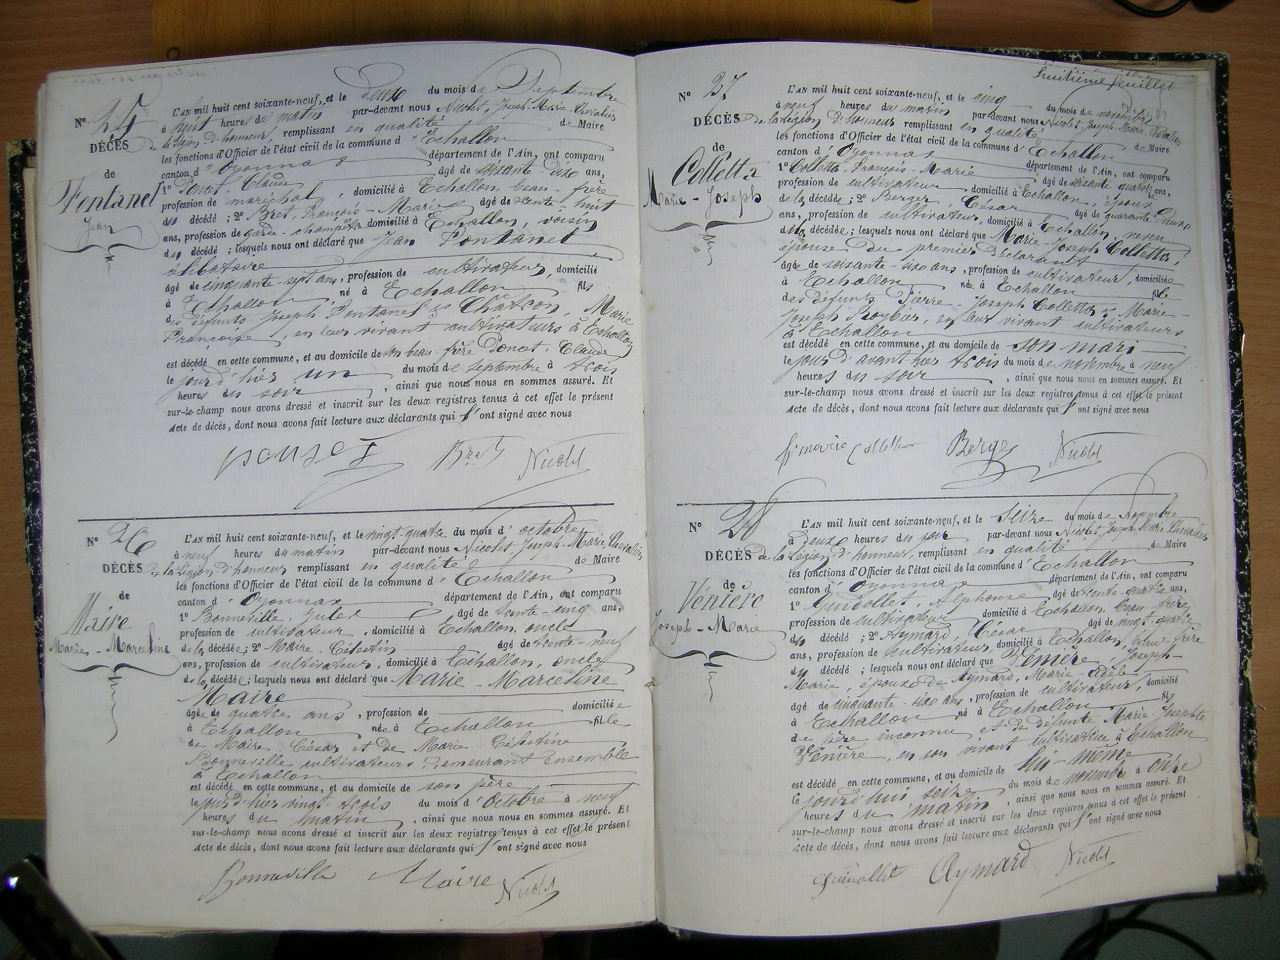 N° 25
DÉCÈS
de
Fontanel
Jean
L'AN mil huit cent soixante-neuf, et le deux du mois de Septembre
à huit heures du matin par-devant nous Nicolet, Joseph-Marie, Chevalier
de la Légion d'honneur remplissant en qualité de Maire
les fonctions d'Officier de l'état civil de la commune d'Echallon
canton d'Oyonnax département de l'Ain, ont comparu
1° Poncet, Claude âgé de soixante-dix ans,
profession de maréchal, domicilié à Echallon, beau-frère
du décédé; 2° Bret, François-Marie âgé de trente huit
ans, profession de garde-champêtre domicilié à Echallon, voisin
du décédé; lesquels nous ont déclaré que Jean Fontanel
célibataire
âgé de cinquante-sept ans, profession de cultivateur, domicilié
à Echallon, né à Echallon fils
des défunts Joseph Fontanel et Marie
Françoise, en leur vivant cultivateurs à Echallon
est décédé en cette commune, et au domicile de son beau-frère Poncet, Claude
le jour d'hier un du mois de septembre à trois
heures du soir, ainsi que nous nous en sommes assuré. Et
sur-le-champ nous avons dressé et inscrit sur les deux registres tenus à cet effet le présent
acte de décès, dont nous avons fait lecture aux déclarants qui l'ont signé avec nous
Bret Nicolet
N° 26
DÉCÈS
de
Maire
Marie-Marceline
L'AN mil huit cent soixante-neuf, et le vingt-quatre du mois d'octobre
à neuf heures du matin par-devant nous Nicolet, Joseph-Marie, Chevalier
de la Légion d'honneur remplissant en qualité de Maire
les fonctions d'Officier de l'état civil de la commune d'Echallon
canton d'Oyonnax département de l'Ain, ont comparu
1° Bonneville, Jules âgé de trente-cinq ans,
profession de cultivateur, domicilié à Echallon, oncle
de la décédée; 2° Maire, Célestin âgé de trente-neuf
ans, profession de cultivateur, domicilié à Echallon, oncle
de la décédée; lesquels nous ont déclaré que Marie-Marceline
Maire
âgée de quatre ans, profession de domiciliée
à Echallon née à Echallon fille
de Maire, César et de Marie Célestine
Bonneville cultivateurs demeurant ensemble
à Echallon
est décédé en cette commune, et au domicile de son père
le jour d'hier vingt-trois du mois d'Octobre à neuf
heures du matin, ainsi que nous nous en sommes assuré. Et
sur-le-champ nous avons dressé et inscrit sur les deux registres tenus à cet effet le présent
acte de décès, dont nous avons fait lecture aux déclarants qui l'ont signé avec nous
Bonneville Maire Nicolet
huitième feuillet
N° 27
DÉCÈS
de
Colletta
Marie-Joseph
L'AN mil huit cent soixante-neuf, et le cinq du mois de novembre
à neuf heures du matin par-devant nous Nicolet, Joseph, Marie, Chevalier
de la Légion d'honneur remplissant en qualité de Maire
les fonctions d'Officier de l'état civil de la commune d'Echallon
canton d'Oyonnax département de l'Ain, ont comparu
1° Colletta, François-Marie âgé de soixante quatre ans,
profession de cultivateur domicilié à Echallon, époux
de la décédé; 2° Berger, César âgé de quarante deux
ans, profession de cultivateur, domicilié à Echallon, neveu
de la décédée; lesquels nous ont déclaré que Marie-Joseph Colletta,
épouse du premier déclarant
âgé de soixante-six ans, profession de cultivateur, domiciliée
à Echallon née à Echallon fille
des défunts Pierre-Joseph Colletta & Marie-
Joseph, en leur vivant cultivateurs
à Echallon
est décédé en cette commune, et au domicile de son mari
le jour d'avant hier trois du mois de novembre à neuf
heures du soir, ainsi que nous nous en sommes assuré. Et
sur-le-champ nous avons dressé et inscrit sur les deux registres tenus à cet effet le présent
acte de décès, dont nous avons fait lecture aux déclarants qui l'ont signé avec nous
Berger Nicolet
N° 28
DÉCÈS
de
Venière
Joseph-Marie
L'AN mil huit cent soixante-neuf, et le seize du mois de novembre
à deux heures du soir par-devant nous Nicolet, Joseph Marie, Chevalier
de la Légion d'honneur, remplissant en qualité de Maire
les fonctions d'Officier de l'état civil de la commune d'Echallon
canton d'Oyonnax département de l'Ain, ont comparu
1° Guicollet, Alphonse âgé de trente-quatre ans,
profession de cultivateur domicilié à Echallon, beau-frère
du décédé; 2° Aymard, César âgé de vingt-quatre
ans, profession de cultivateur, domicilié à Echallon, beau frère
du décédé; lesquels nous ont déclaré que Venière, Joseph-
Marie, époux de Aymard, Marie-Adèle
âgé de cinquante-six ans, profession de cultivateur, domicilié
à Echallon, né à Echallon fils
de père inconnu et de défunte Marie Josephte
Venière, en son vivant cultivatrice à Echallon
est décédé en cette commune, et au domicile de lui-même
le jourd'hui seize du mois de novembre à onze
heures du matin, ainsi que nous nous en sommes assuré. Et
sur-le-champ nous avons dressé et inscrit sur les deux registres tenus à cet effet le présent
acte de décès, dont nous avons fait lecture aux déclarants qui l'ont signé avec nous
Aymard Nicolet